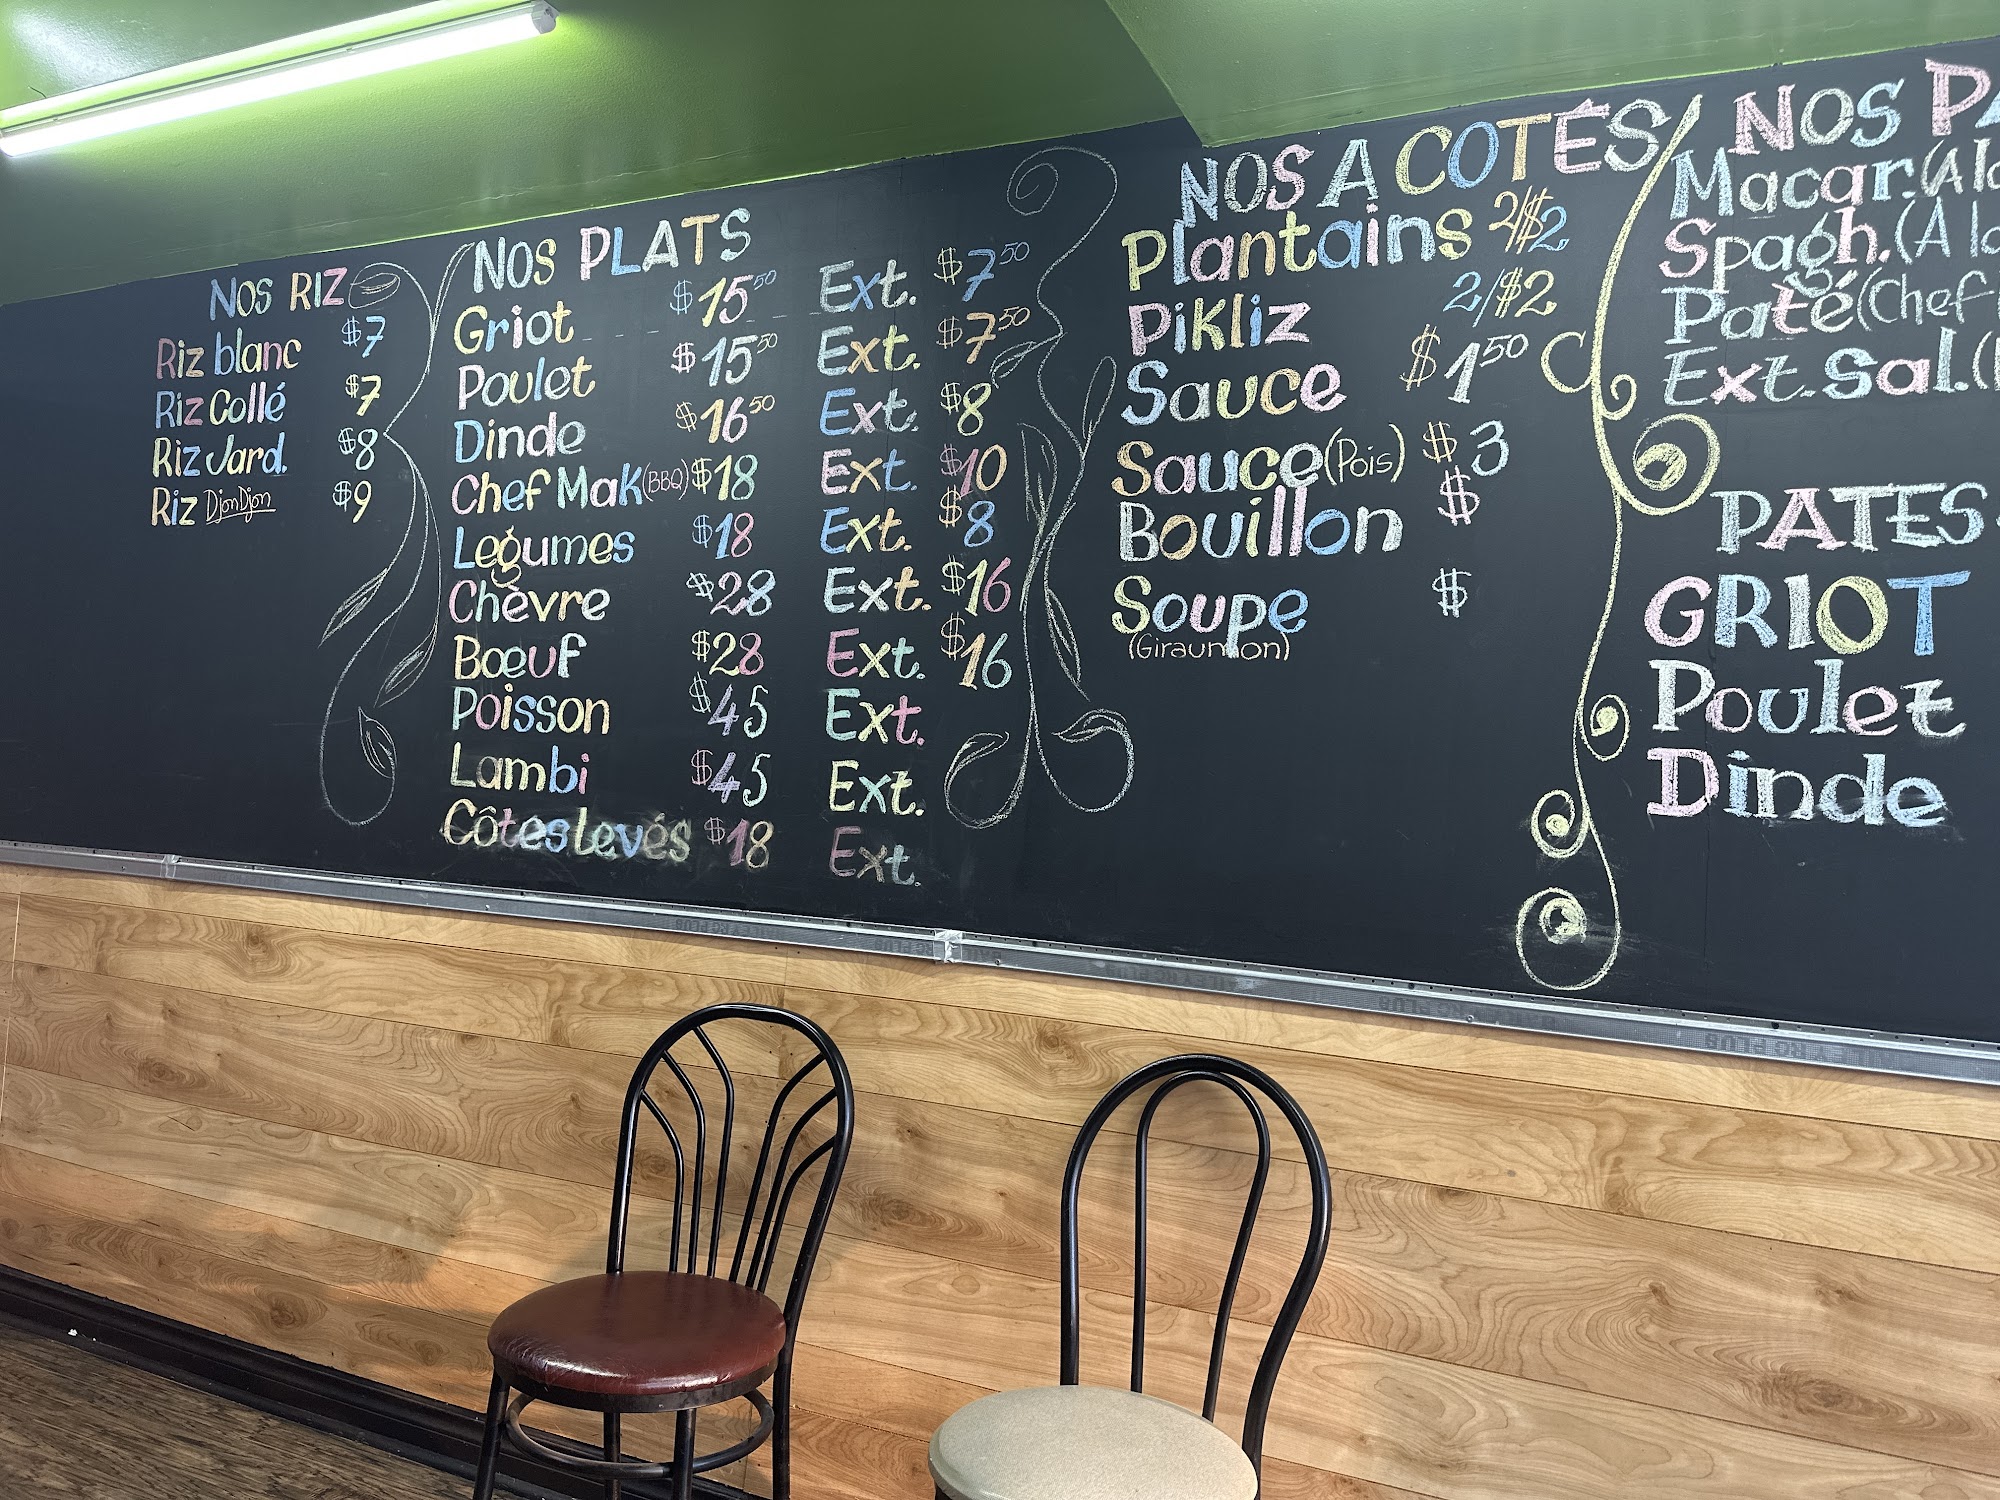 NOS RIZ
Riz blanc $7
Riz Collé $7
Riz Jard. $8
Riz DjonDjon $9
NOS PLATS
Griot $15.50 Ext. $7.50
Poulet $15.50 Ext. $7.50
Dinde $16.50 Ext. $8
Chef Mak (BBQ) $18 Ext. $10
Legumes $18 Ext. $8
Chèvre $28 Ext. $16
Bœuf $28 Ext. $16
Poisson $45 Ext.
Lambi $45 Ext.
Côtes levés $18 Ext.
NOS A COTÉS
Plantains 2/$2
Pikliz 2/$2
Sauce $1.50
Sauce (Pois) $3
Bouillon $
Soupe $
(Giraumon)
NOS
Macar. (A
Spagh. (A
Paté (Chef
Ext. Sal. (
PATES
GRIOT
Poulet
Dinde